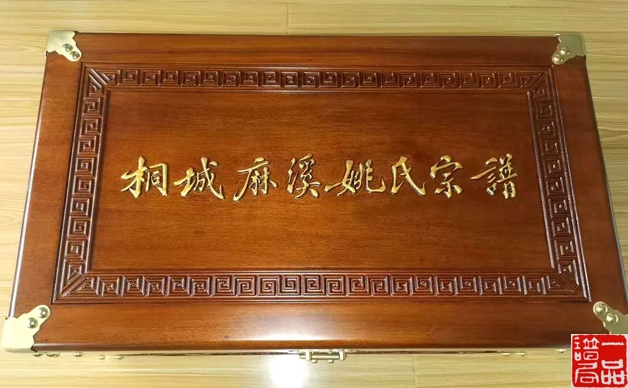 桐城麻溪姚氏宗譜
一品譜局